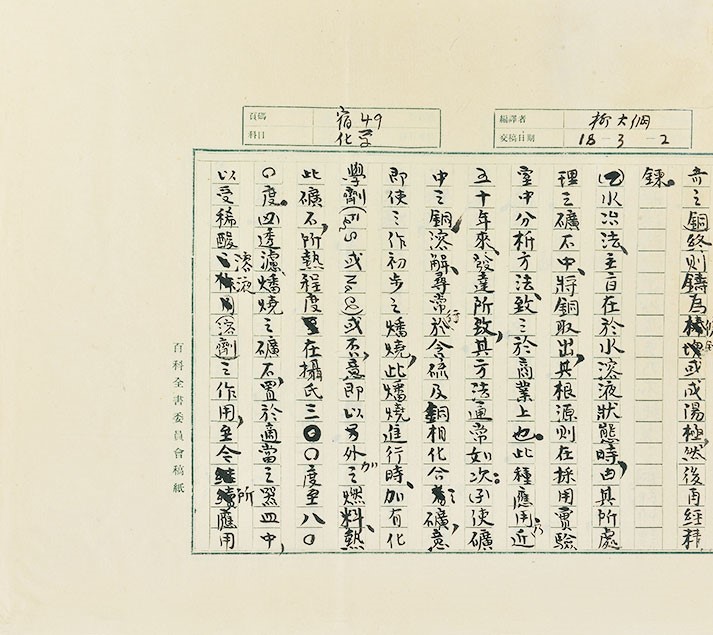 編譯者 柳大綱
交稿日期 18-3-2
頁碼 宿49
科目 化学
奇之銅終則鑄為
塊或成湯極,然後再經精
鍊。
水冶法,主旨在於水溶液狀態時,由其所處
理之礦石中,將銅取出,其根源則在採用實驗
室中分析方法,致之於商業上也。此種應用乃近
五十年來,發達所致,其方法通常如次:(1)使礦
中之銅,溶解,尋常行於含硫及銅相化合之礦,意
即使之作初步之燔燒,此燔燒進行時,加有化
學劑或否,意即以另外之燃料,熱
此礦石,所熱程度在攝氏三〇〇度至八〇
〇度。四透濾燔燒之礦石,置於適當之器皿中,
以受稀酸溶液(溶劑)之作用,至今所應用
百科全書委員會稿紙